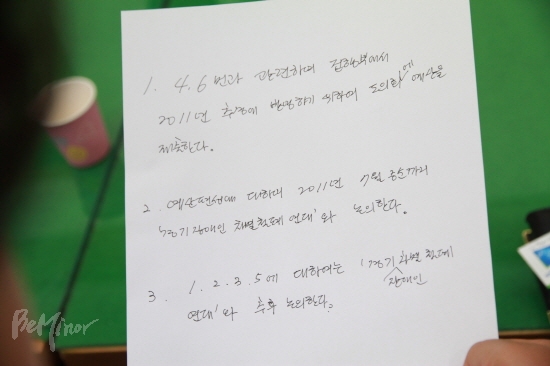 1. 4.6번과 관련하여 집행부에서
2011년 추경에 반영하기 위하여 도의회에 예산을
제출한다.
2. 예산편성에 대하여 2011년 7월 중순까지
'경기장애인 차별철폐 연대'와 논의한다.
3. 1.2.3.5에 대하여는 '경기장애인 차별철폐
연대'와 추후 논의한다.
BeMinor